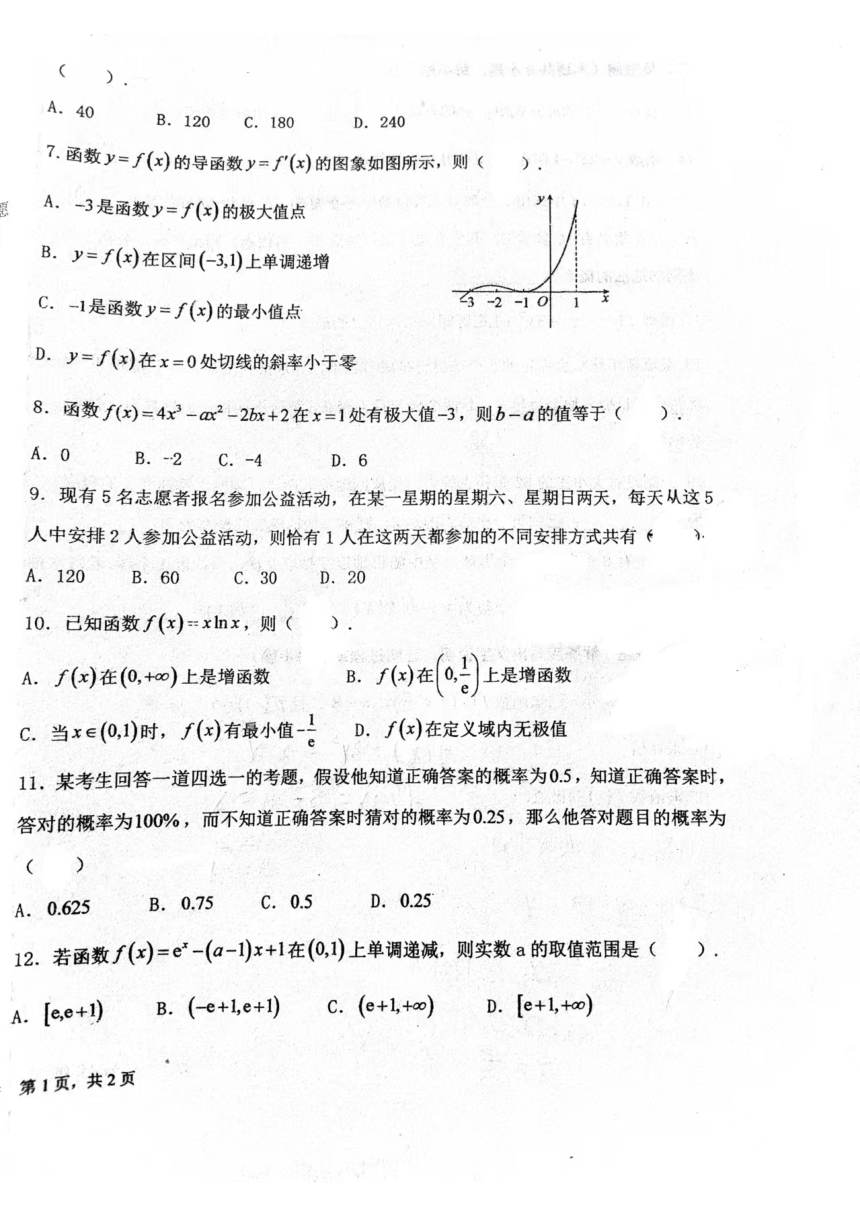 (    ).
A. 40    B. 120    C. 180    D. 240
7. 函数 y=f(x) 的导函数 y=f′(x) 的图象如图所示，则 (    ).
A. -3是函数 y=f(x) 的极大值点
B. y=f(x) 在区间 (-3,1) 上单调递增
C. -1是函数 y=f(x) 的最小值点
D. y=f(x) 在 x=0 处切线的斜率小于零
y
-3 -2 -1 O 1 x
8. 函数 f(x)=4x³-ax²-2bx+2 在 x=1 处有极大值-3，则 b-a 的值等于 (    ).
A. 0    B. -2    C. -4    D. 6
9. 现有 5 名志愿者报名参加公益活动，在某一星期的星期六、星期日两天，每天从这 5
人中安排 2 人参加公益活动，则恰有 1 人在这两天都参加的不同安排方式共有 (    ).
A. 120    B. 60    C. 30    D. 20
10. 已知函数 f(x)=xlnx，则 (    ).
A. f(x) 在 (0,+∞) 上是增函数    B. f(x) 在 (0,1/e) 上是增函数
C. 当 x∈(0,1) 时，f(x) 有最小值 -1/e    D. f(x) 在定义域内无极值
11. 某考生回答一道四选一的考题，假设他知道正确答案的概率为0.5，知道正确答案时，
答对的概率为100%，而不知道正确答案时猜对的概率为0.25，那么他答对题目的概率为
(    )
A. 0.625    B. 0.75    C. 0.5    D. 0.25
12. 若函数 f(x)=eˣ-(a-1)x+1 在 (0,1) 上单调递减，则实数 a 的取值范围是 (    ).
A. [e,e+1)    B. (-e+1,e+1)    C. (e+1,+∞)    D. [e+1,+∞)
第 1 页，共 2 页